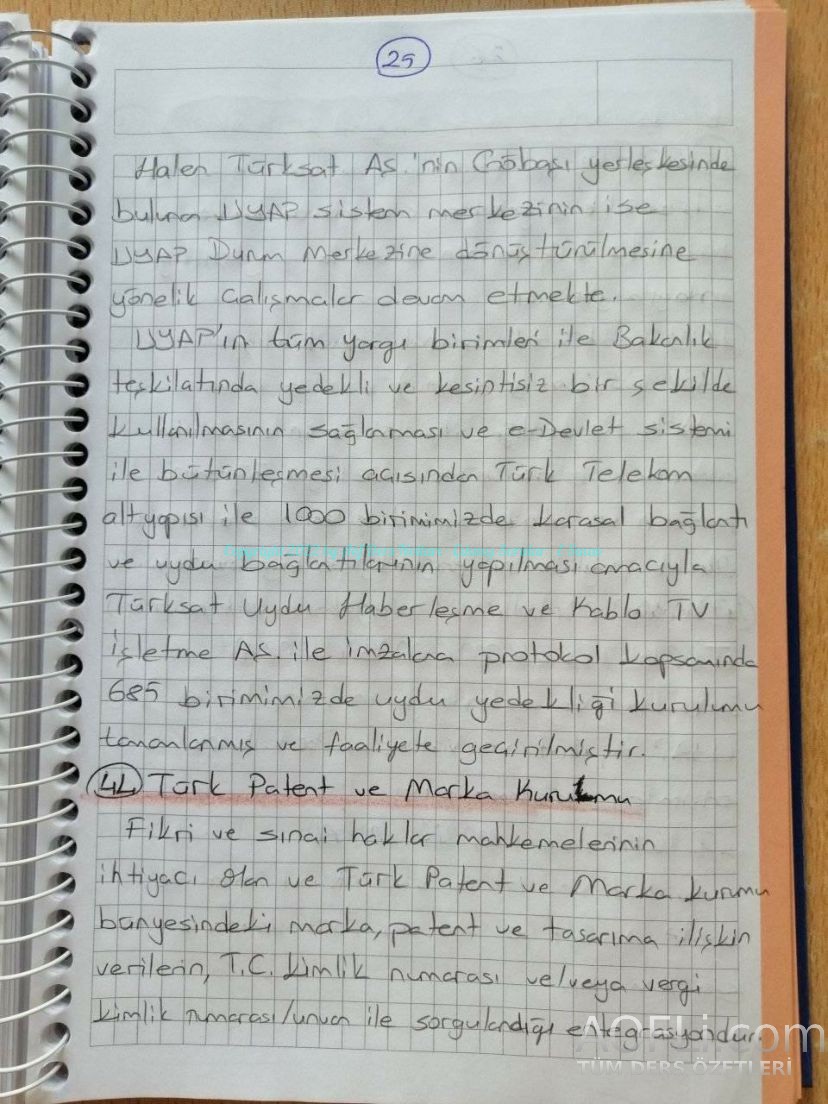 25
Halen Türksat AŞ.'nin Gölbaşı yerleşkesinde
bulunan UYAP sistem merkezinin ise
UYAP Durum Merkezine dönüştürülmesine
yönelik çalışmalar devam etmekte.
UYAP'ın tüm yargı birimleri ile Bakanlık
teşkilatında yedekli ve kesintisiz bir şekilde
kullanılmasının sağlanması ve e-Devlet sistemi
ile bütünleşmesi açısından Türk Telekom
altyapısı ile 1000 birimimizde karasal bağlantı
ve uydu bağlantılarının yapılması amacıyla
Türksat Uydu Haberleşme ve Kablo TV
işletme AŞ. ile imzalanan protokol kapsamında
685 birimimizde uydu yedekliği kurulumu
tamamlanmış ve faaliyete geçirilmiştir.
44 Türk Patent ve Marka Kurumu
Fikri ve sınai haklar mahkemelerinin
ihtiyacı olan ve Türk Patent ve Marka kurumu
bünyesindeki marka, patent ve tasarıma ilişkin
verilerin, T.C. kimlik numarası ve/veya vergi
kimlik numarası/unvan ile sorgulandığı entegrasyondur.
AOFLi.com
TÜM DERS ÖZETLERİ